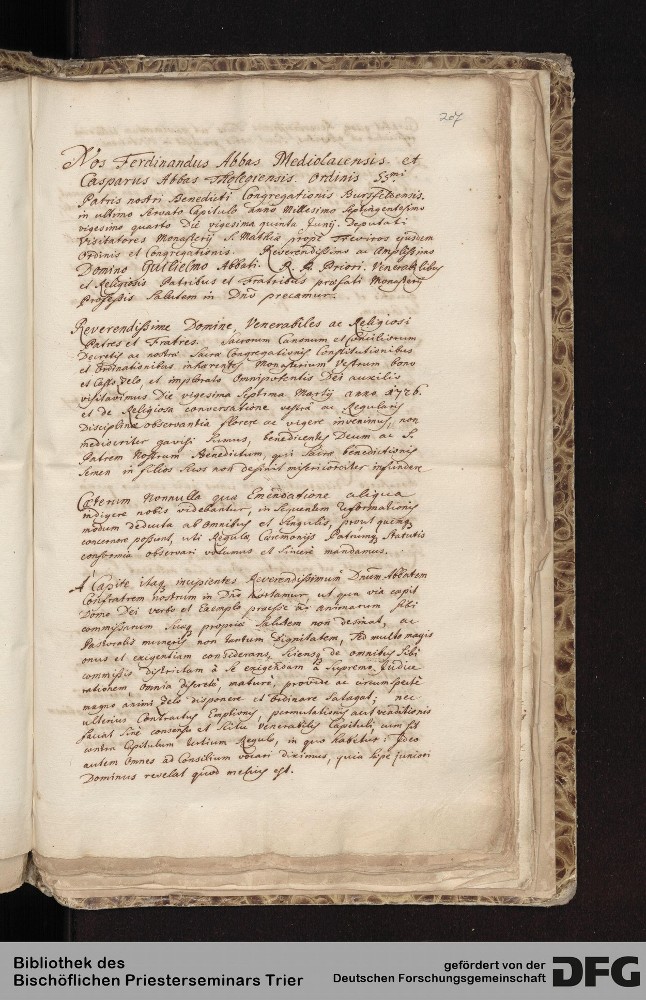 207
Nos Ferdinandus Abbas Mediolacensis et
Casparus Abbas Tholeiensis Ordinis SSmi
Patris nostri Benedicti Congregationis Bursfeldensis.
in ultimo servato Capitulo anno Millesimo Septingentesimo
vigesimo quarto Die vigesima quinta Junij. Deputati
Visitatores Monasterij S. Mathiæ prope Treviros ejusdem
Ordinis et Congregationis Reverendissimo ac Amplissimo
Domino Guilielmo Abbati. R. P. Priori. Venerabilibus
et Religiosis Patribus et Fratribus præfati Monasterij
Professis Salutem in Dño precamur.
Reverendissime Domine, Venerabiles ac Religiosi
Patres et Fratres. Sacrorum Canonum et Conciliorum
Decretis ac nostræ Sacræ Congregationis Constitutionibus
et Ordinationibus inhærentes Monasterium Vestrum bono
et Casto zelo, et implorato Omnipotentis Dei auxilio
visitavimus Die vigesima Septima Martij anno 1726.
et de Religiosa conversatione vestra ac Regularis
Disciplinæ observantia florere ac vigere invenimus, non
mediocriter gavisi Sumus, benedicentes Deum ac S.
Patrem Nostrum Benedictum, qui Sacræ benedictionis
Semen in filios Suos non desinit misericorditer infundere
Cæterum Nonnulla quæ Emendatione aliqua
indigere nobis videbantur, in Sequentem reformationis
modum deducta ab omnibus et Singulis, prout quemq
concernere possunt, uti Regulæ, Cæremonijs Patrumq Statutis
conformia observari volumus et Sincere mandamus.
A Capite itaq incipientes Reverendissimum Dnum Abbatem
Confratrem Nostrum in Dño hortamur, ut quæ via cæpit
Domo Dei verbo et Exemplo præesse ac animarum Sibi
commissarum Suæq propriæ Saluti non desinat, ac
Pastoralis muneris non tantum Dignitatem, Sed multo magis
onus et exigentiam considerans, Sciensq de omnibus Sibi
commissis districtam à Se exigendam à Supremo Judice
rationem, omnia discretè, maturè, providè ac circumspectè
magno animi zelo disponere et Ordinare Satagat; nec
ulterius Contractus Emptionis, permutationis aut venditionis
faciat Sine consensu et Scitu venerabilis Capituli, cum Sit
contra Capitulum tertium Regulæ, in quo habetur: Ideo
autem Omnes ad Consilium vocari diximus, quia Sæpe juniori
Dominus revelat quod melius est.
Bibliothek des
Bischöflichen Priesterseminars Trier
gefördert von der
Deutschen Forschungsgemeinschaft
DFG